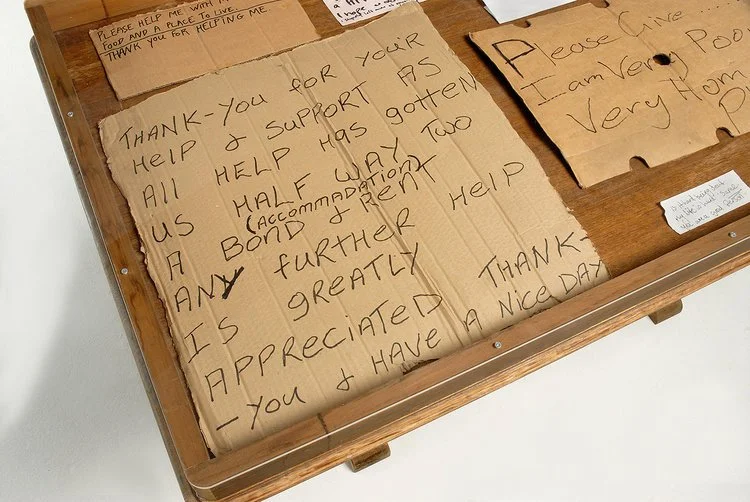 PLEASE HELP ME WITH
FOOD AND A PLACE TO LIVE.
THANK YOU FOR HELPING ME.
THANK-YOU for YOUR
HElP & SUPPORT AS
All HELP HAS gotten
US HALF WAY TWO
(ACCOMMADATION)
A BOND & RENT
ANY fURTHER HElP
IS gREATLY
APPRECIATED THANK-
-YOU & HAVE A NICE DAY
Please Give ....
I am Very Poo
Very Hom
P